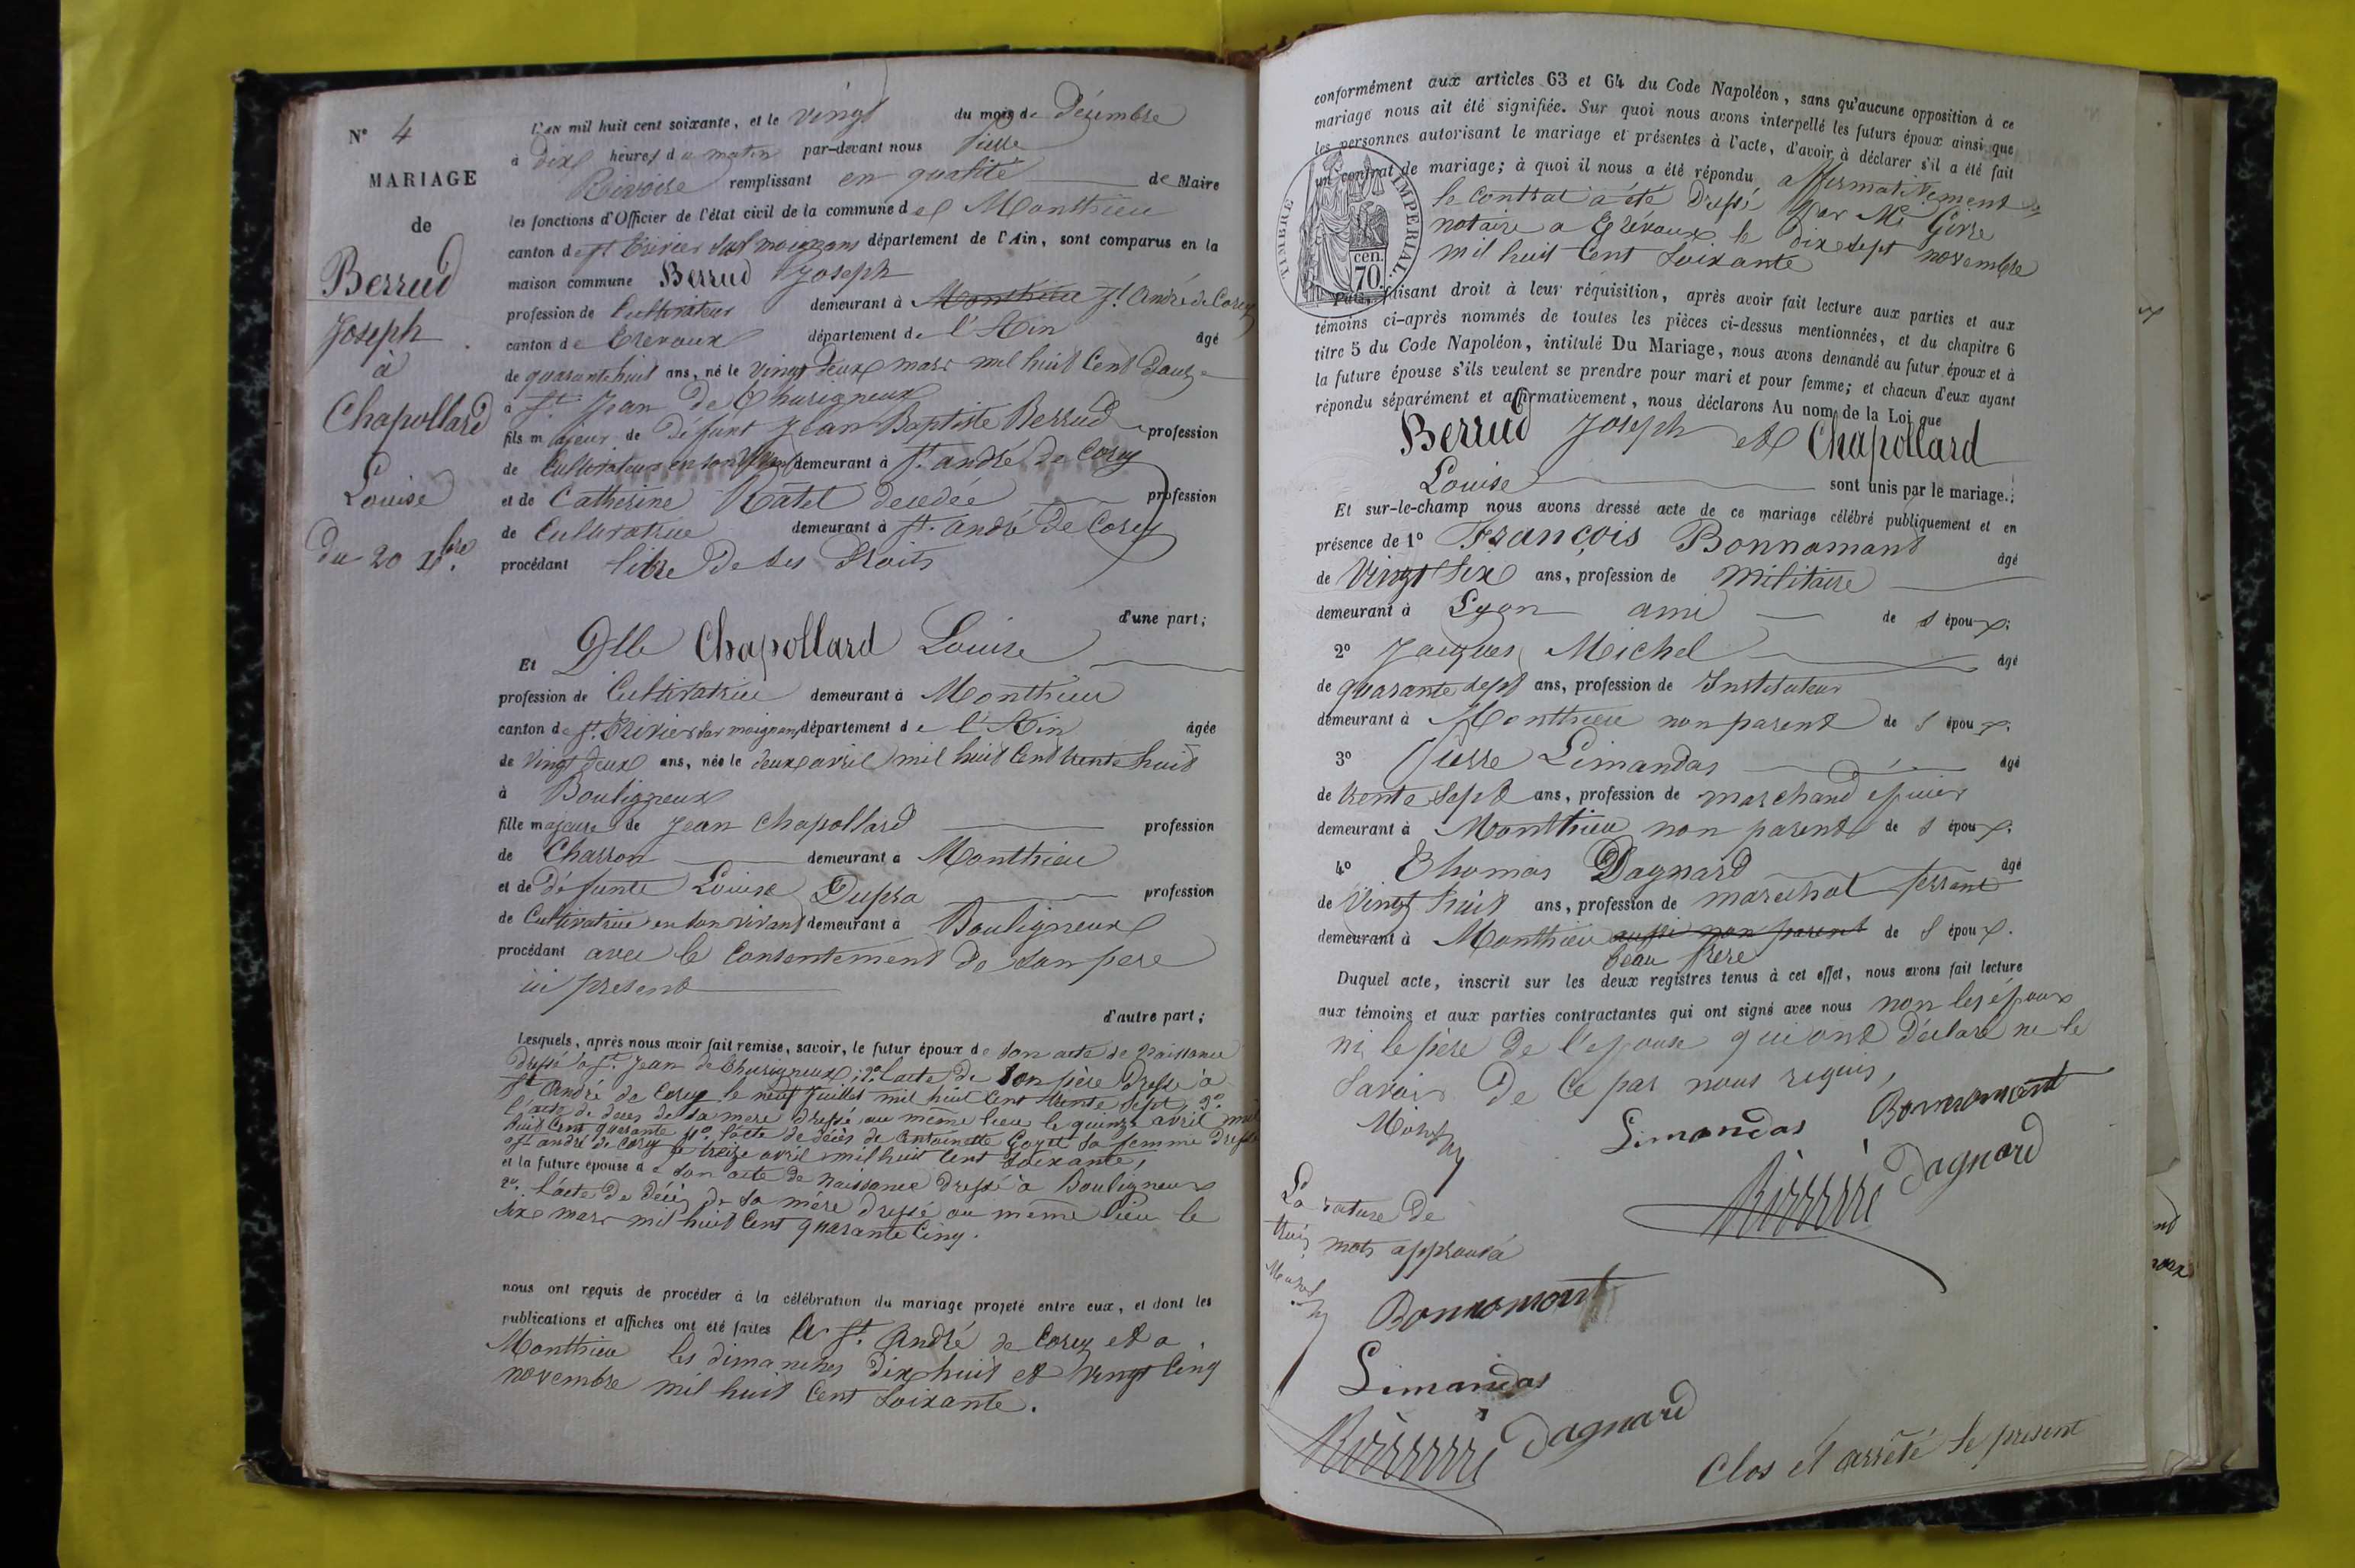 N° 4
MARIAGE
de
Berrud
Joseph
à
Chapollard
Louise
Du 20 Xbre.
L'AN mil huit cent soixante, et le vingt du mois de Décembre
à dix heures du matin par-devant nous Pierre
Rivoire remplissant en qualité de Maire
les fonctions d'Officier de l'état civil de la commune de Monthieu
canton de St. Trivier sur moignans département de l'Ain, sont comparus en la
maison commune Berrud Joseph
profession de Cultivateur demeurant à Monthieu St. André de Corcy
canton de Trevoux département de l'Ain âgé
de quarante huit ans, né le vingt deux mars mil huit Cent Douze
à St. Jean de Thurigneux
fils majeur de défunt Jean Baptiste Berrud profession
de Cultivateur en son vivant demeurant à St. André de Corcy
et de Catherine Ratel decedée profession
de Cultivatrice demeurant à St. André de Corcy
procédant libre de ses Droits
d'une part;
Et Dlle Chapollard Louise
profession de Cultivatrice demeurant à Monthieu
canton de St. Trivier sur moignans département de l'Ain âgée
de vingt deux ans, née le deux avril mil huit Cent trente huit
à Bouligneux
fille majeure de Jean Chapollard profession
de Charron demeurant à Monthieu
et de défunte Louise Dupra profession
de Cultivatrice en son vivant demeurant à Bouligneux
procédant avec le Consentement de son pere
ici present
d'autre part;
Lesquels, après nous avoir fait remise, savoir, le futur époux de son acte de Naissance
dressé à St. Jean de Thurigneux; 2° l'acte de son père dressé à
St André de Corcy le neuf Juillet mil huit Cent trente sept, 3°
l'acte de deces de sa mere dressé au même lieu le quinze avril mil
huit Cent quarante 4° l'acte de décès de Antoinette Goyet sa femme dressé
a St andré de Corcy le treize avril mil huit Cent soixante,
et la future épouse de son acte de Naissance Dressé à Bouligneux
2° l'acte de décès de sa mère dressé au même lieu le
six mars mil huit Cent quarante Cinq.
nous ont requis de procéder à la célébration du mariage projeté entre eux, et dont les
publications et affiches ont été faites à St. André de Corcy et a
Monthieu les dimanches dix huit et vingt Cinq
novembre mil huit Cent soixante.
conformément aux articles 63 et 64 du Code Napoléon, sans qu'aucune opposition à ce
mariage nous ait été signifiée. Sur quoi nous avons interpellé les futurs époux ainsi que
les personnes autorisant le mariage et présentes à l'acte, d'avoir à déclarer s'il a été fait
un contrat de mariage; à quoi il nous a été répondu affirmativement
le Contrat a été Dressé par Me Girre
notaire a Trévoux le dix sept novembre
mil huit Cent Soixante
TIMBRE IMPERIAL.
cen.
70.
Puis, faisant droit à leur réquisition, après avoir fait lecture aux parties et aux
témoins ci-après nommés de toutes les pièces ci-dessus mentionnées, et du chapitre 6
titre 5 du Code Napoléon, intitulé Du Mariage, nous avons demandé au futur époux et à
la future épouse s'ils veulent se prendre pour mari et pour femme; et chacun d'eux ayant
répondu séparément et affirmativement, nous déclarons Au nom de la Loi que
Berrud Joseph et Chapollard
Louise sont unis par le mariage.
Et sur-le-champ nous avons dressé acte de ce mariage célébré publiquement et en
présence de 1° François Bonnamant âgé
de vingt six ans, profession de militaire
demeurant à Lyon ami de l'époux;
2° Jacques Michel âgé
de quarante sept ans, profession de Instituteur
demeurant à Monthieu non parent de l'époux;
3° Pierre Limandas âgé
de trente sept ans, profession de marchand epicier
demeurant à Monthieu non parent de l'époux;
4° Thomas Dagnard âgé
de vingt huit ans, profession de maréchal ferrant
demeurant à Monthieu aussi non parent de l'époux.
beau frère
Duquel acte, inscrit sur les deux registres tenus à cet effet, nous avons fait lecture
aux témoins et aux parties contractantes qui ont signé avec nous non les époux
ni le père de l'epouse qui ont déclaré ne le
Savoir de Ce par nous requis,
Limandas Bonnamant
Dagnard
La rature de
trois mots approuvé
Bonnamont
Limandas
Dagnard
Clos et arrêté le present